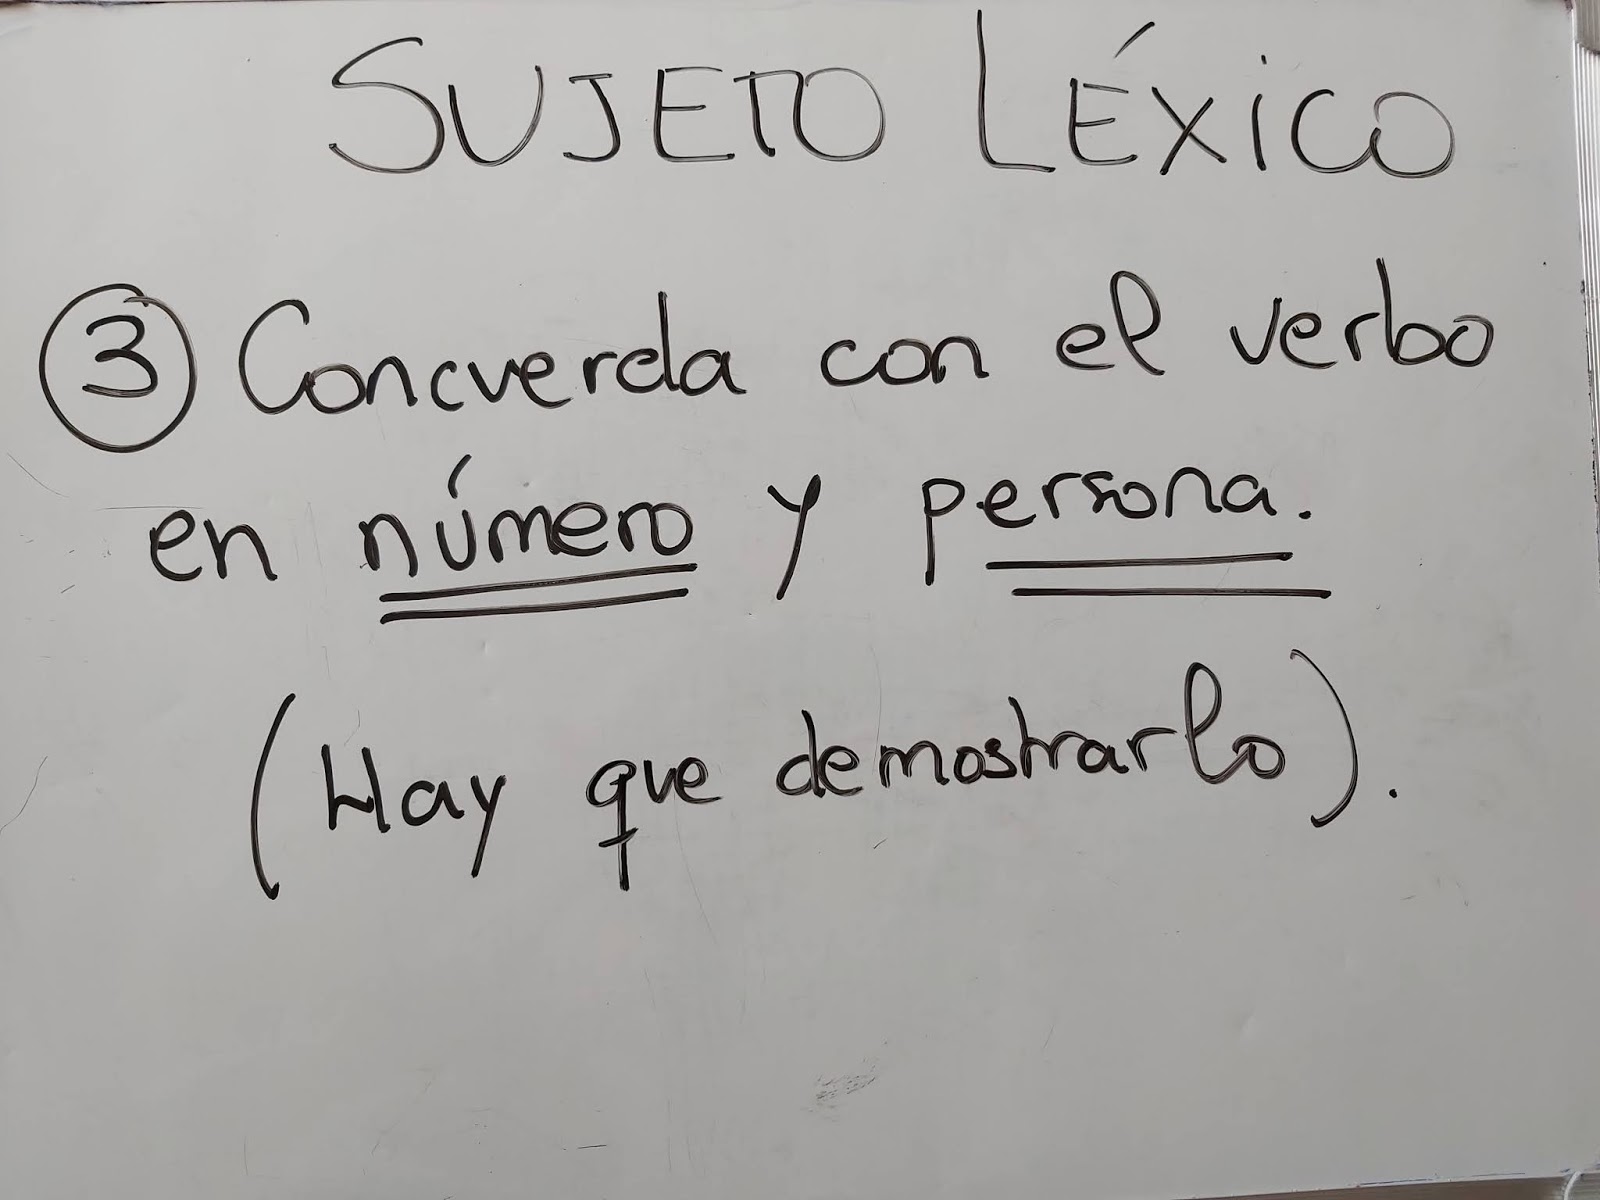 SUJETO LÉXICO
3 Concuerda con el verbo
en número y persona.
(Hay que demostrarlo).